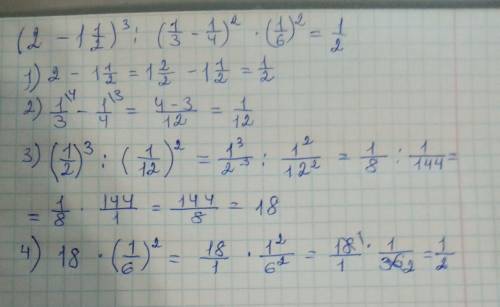 (2 - 1 1/2)³ : (1/3 - 1/4)² · (1/6)² = 1/2
1) 2 - 1 1/2 = 1 2/2 - 1 1/2 = 1/2
2) 1/3\4 - 1/4\3 = 4-3/12 = 1/12
3) (1/2)³ : (1/12)² = 1³/2³ : 1²/12² = 1/8 : 1/144 =
= 1/8 · 144/1 = 144/8 = 18
4) 18 · (1/6)² = 18/1 · 1²/6² = 18\1/1 · 1/36 2 = 1/2